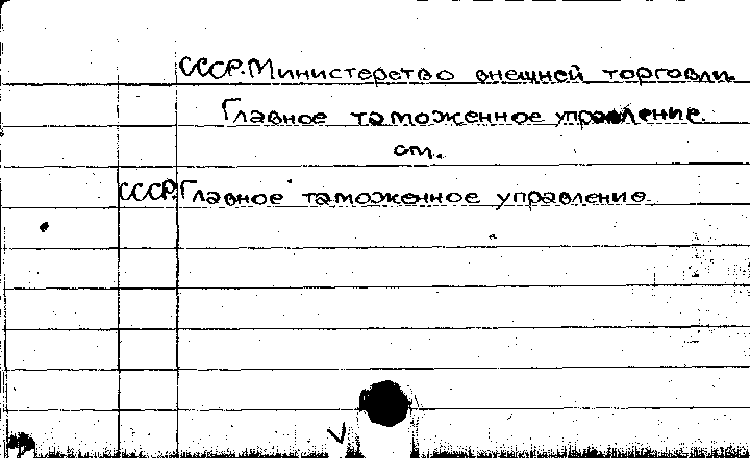 СССР. Министерство внешней торговли.
Главное таможенное управление.
см.
СССР. Главное таможенное управление.